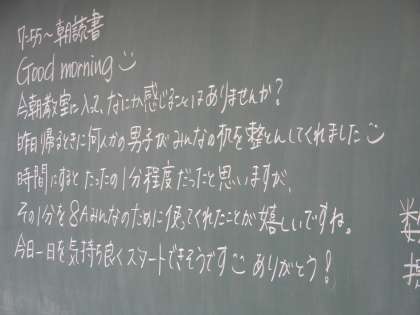 7:55～朝読書
Good morning
今朝教室に入って、なにか感じることはありませんか？
昨日帰るときに何人かの男子がみんなの机を整とんしてくれました
時間にするとたったの1分程度だったと思いますが、
その1分を8Aみんなのために使ってくれたことが嬉しいですね。
今日一日を気持ち良くスタートできそうです ありがとう！